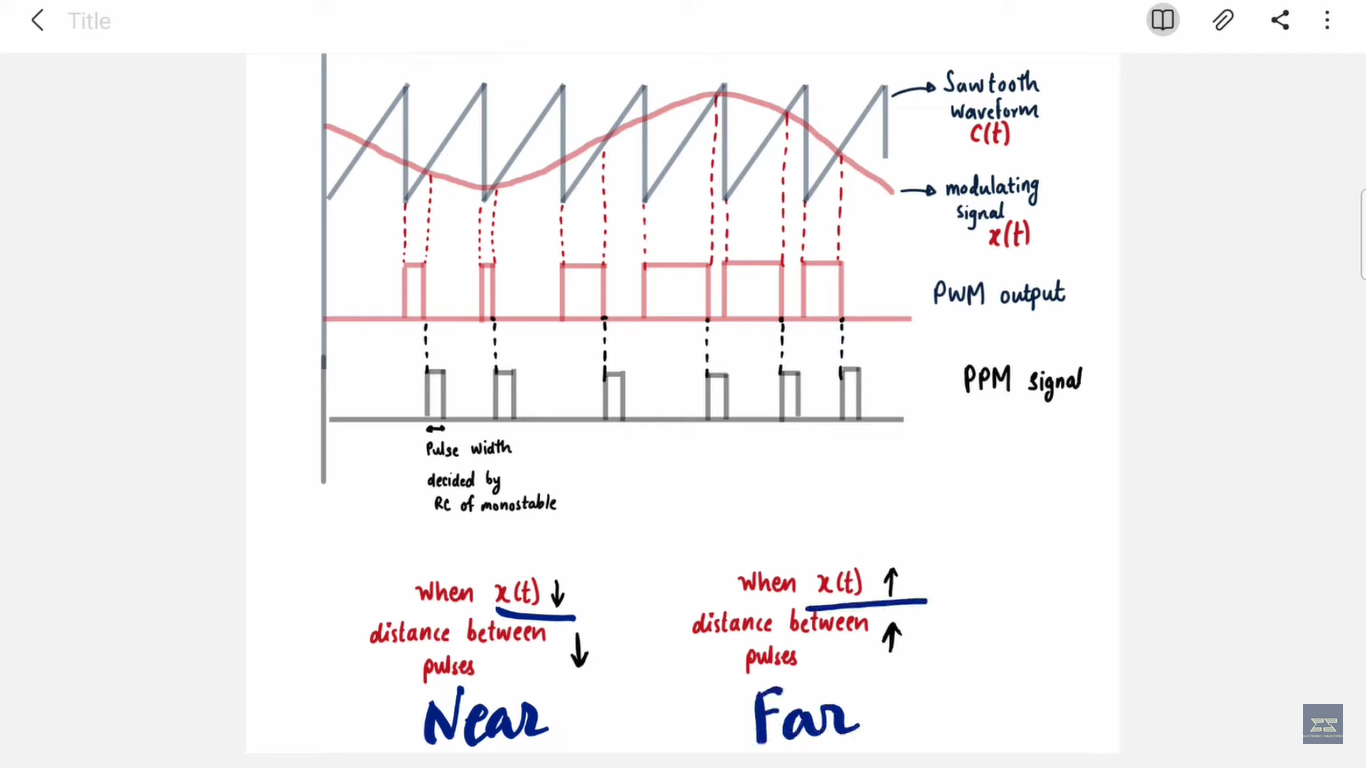 Title
Sawtooth
waveform
c(t)
modulating
signal
x(t)
PWM output
PPM signal
Pulse width
decided by
RC of monostable
When x(t) ↓
distance between ↓
pulses
Near
When x(t) ↑
distance between ↑
pulses
Far